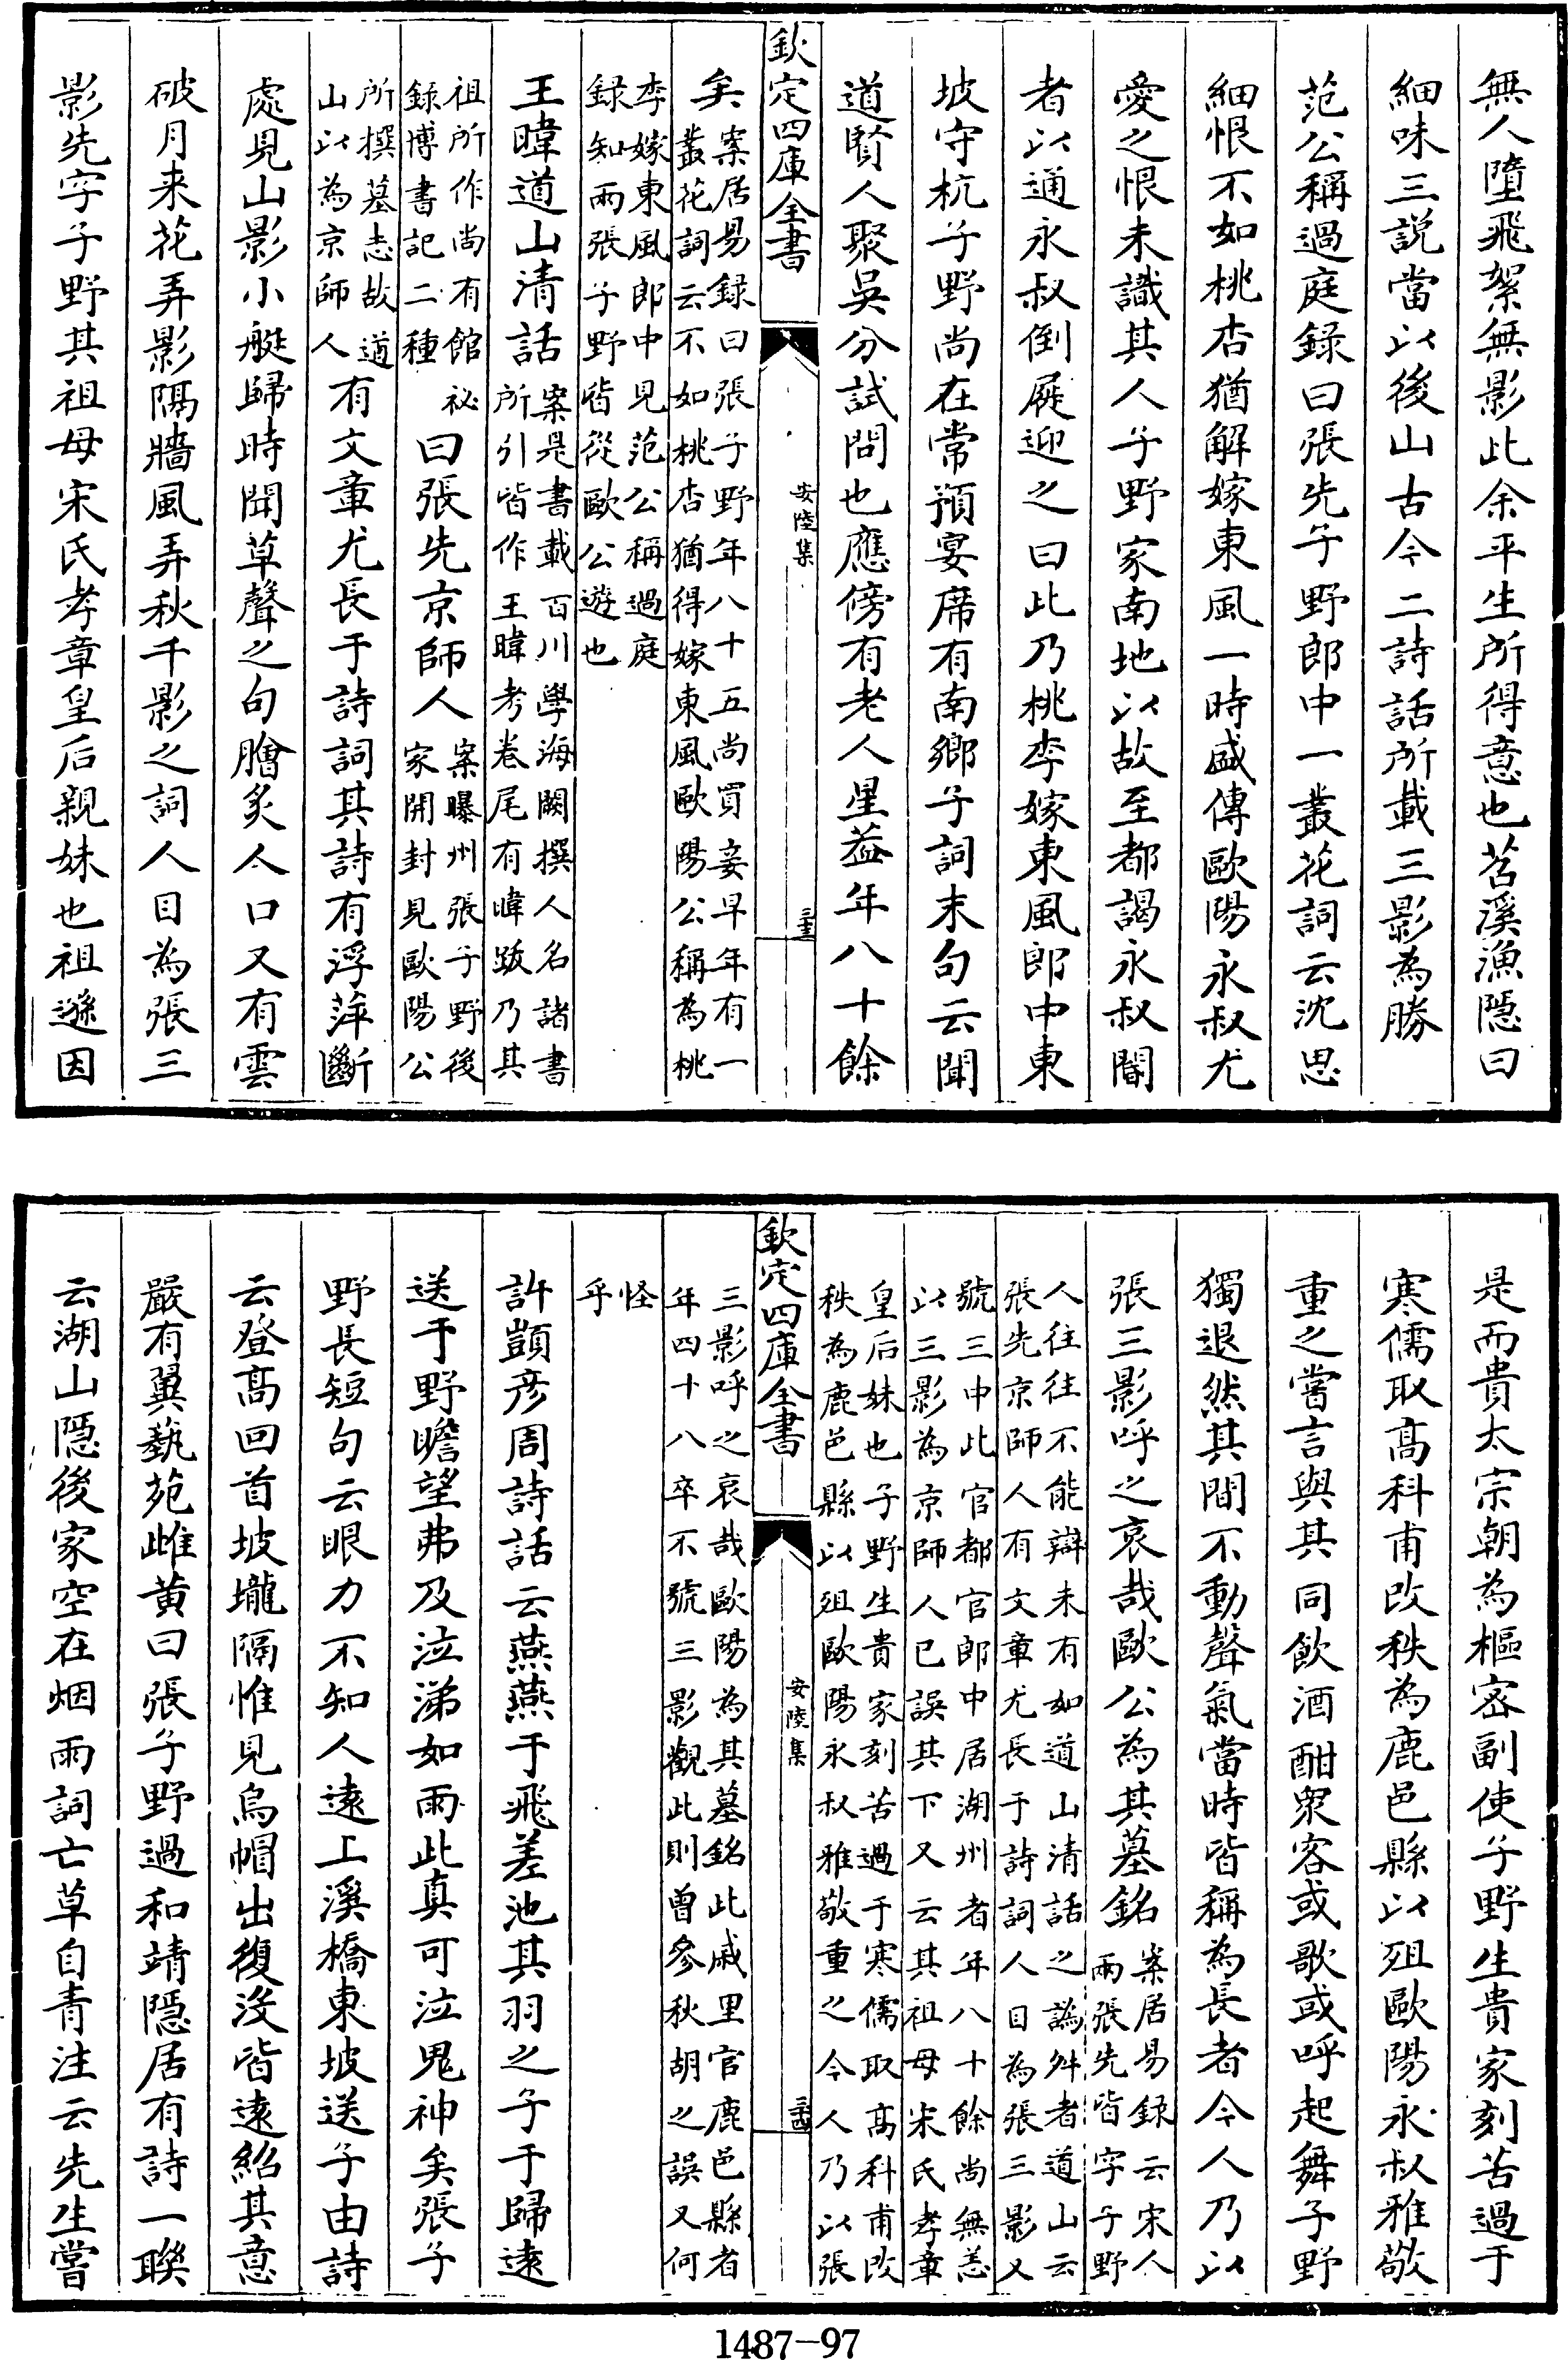 無人墮飛絮無影此余平生所得意也苕溪漁隱曰
細味三説當以後山古今二詩話所載三影為勝
范公稱過庭録曰張先子野郎中一叢花詞云沈思
細恨不如桃杏猶解嫁東風一時盛傳歐陽永叔尤
愛之恨未識其人子野家南地以故至都謁永叔閽
者以通永叔倒屣迎之曰此乃桃李嫁東風郎中東
坡守杭子野尚在常預宴席有南鄉子詞末句云聞
道賢人聚吳分試問也應傍有老人星葢年八十餘
欽定四庫全書
安陸集
三十三
矣
案居易録曰張子野年八十五尚買妾早年有一
叢花詞云不如桃杏猶得嫁東風歐陽公稱為桃
李嫁東風郎中見范公稱過庭
録知兩張子野皆從歐公遊也
王暐道山清話
案是書載百川學海闕撰人名諸書
所引皆作王暐考卷尾有暐跋乃其
祖所作尚有館祕
録博書記二種
曰張先京師人
案曝州張子野後
家開封見歐陽公
所撰墓志故道
山以為京師人
有文章尤長于詩詞其詩有浮萍斷
處見山影小艇歸時聞草聲之句膾炙人口又有雲
破月来花弄影隔牆風弄秋千影之詞人目為張三
影先字子野其祖母宋氏孝章皇后親妹也祖遜因
是而貴太宗朝為樞宻副使子野生貴家刻苦過于
寒儒取髙科甫改秩為鹿邑縣以殂歐陽永叔雅敬
重之嘗言與其同飲酒酣衆客或歌或呼起舞子野
獨退然其間不動聲氣當時皆稱為長者今人乃以
張三影呼之哀哉歐公為其墓銘
案居易録云宋人
兩張先皆字子野
人往往不能辯未有如道山清話之譌舛者道山云
張先京師人有文章尤長于詩詞人目為張三影又
號三中此官都官郎中居湖州者年八十餘尚無恙
以三影為京師人已誤其下又云其祖母宋氏孝章
皇后妹也子野生貴家刻苦過于寒儒取髙科甫改
秩為鹿邑縣以殂歐陽永叔雅敬重之今人乃以張
欽定四庫全書
安陸集
三十四
三影呼之哀哉歐陽為其墓銘此戚里官鹿邑縣者
年四十八卒不號三影觀此則曾參秋胡之誤又何
怪
乎
許顗彦周詩話云燕燕于飛差池其羽之子于歸逺
送于野瞻望弗及泣涕如雨此真可泣鬼神矣張子
野長短句云眼力不知人逺上溪橋東坡送子由詩
云登髙回首坡壠隔惟見烏帽出復没皆逺紹其意
嚴有翼藝苑雌黄曰張子野過和靖隱居有詩一聯
云湖山隱後家空在烟雨詞亡草自青注云先生嘗
1487-97